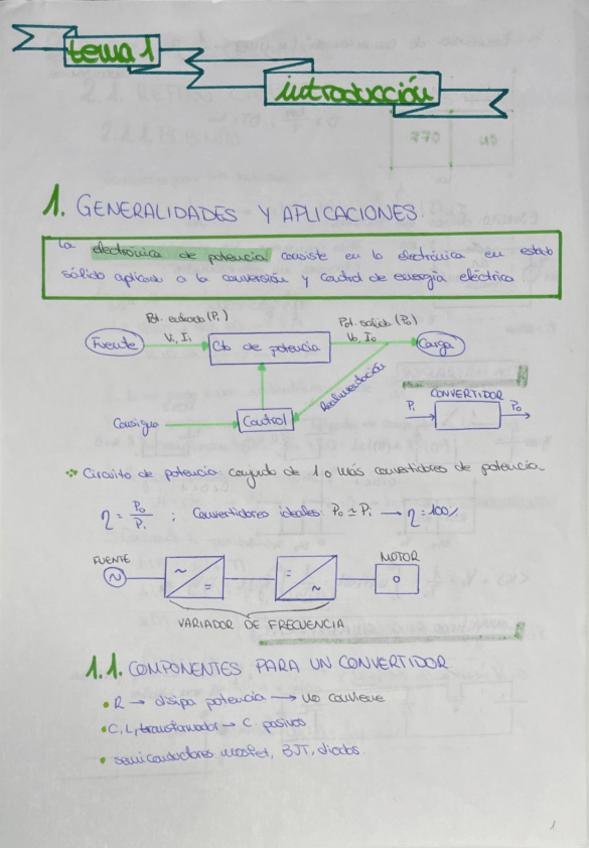 tema 1
introducción
1. GENERALIDADES Y APLICACIONES
La electrónica de potencia consiste en la electrónica en estado
sólido aplicado a la conversión y control de energía eléctrica
Pot. entrada (Pi)
Vi, Ii
Pot. salida (Po)
Vo, Io
Fuente
Cto de potencia
Carga
Realimentación
CONVERTIDOR
Pi
Po
Consigna
Control
Circuito de potencia: conjunto de 1 o más convertidores de potencia
η = Po/Pi ; Convertidores ideales Po ≃ Pi → η = 100%
FUENTE
MOTOR
~
~
=
=
~
VARIADOR DE FRECUENCIA
1.1. COMPONENTES PARA UN CONVERTIDOR
• R → disipa potencia → no conviene
• C, L, transformador → C. pasivos
• semiconductores mosfet, BJT, diodos.
1